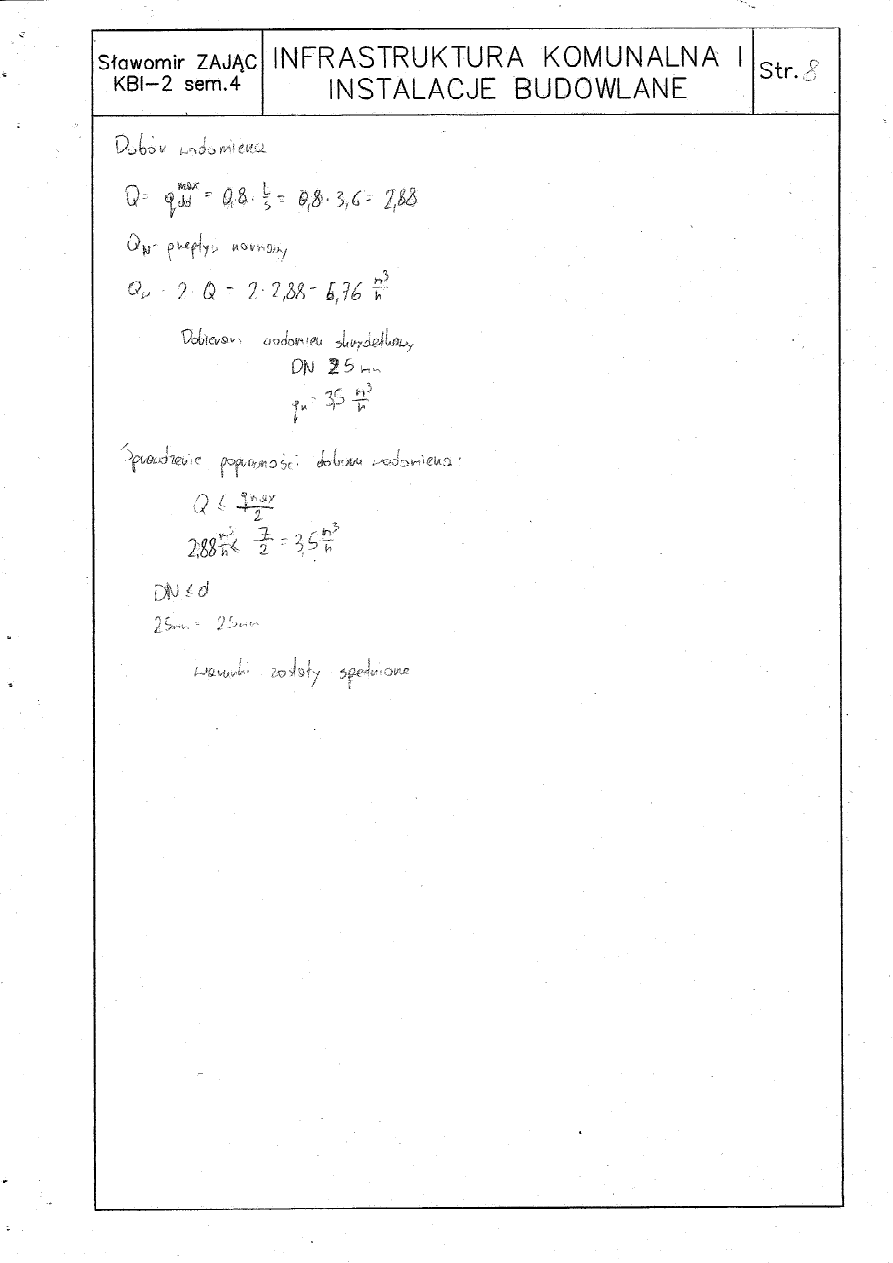 Sławomir ZAJĄC
KBI-2 sem.4
INFRASTRUKTURA KOMUNALNA I
INSTALACJE BUDOWLANE
Str. 8
Dobór wodomierza
Q = q dd max = 0,8 · L/s = 0,8 · 3,6 = 2,88
QN - przepływ nominalny
QN = 2 · Q = 2 · 2,88 = 5,76 m³/h
Dobieram wodomierz skrzydełkowy
DN 25 mm
qn = 3,5 m³/h
Sprawdzenie poprawności doboru wodomierza:
Q ≤ qmax/2
2,88 m³/h ≤ 7/2 = 3,5 m³/h
DN ≤ d
25mm = 25mm
warunki zostały spełnione